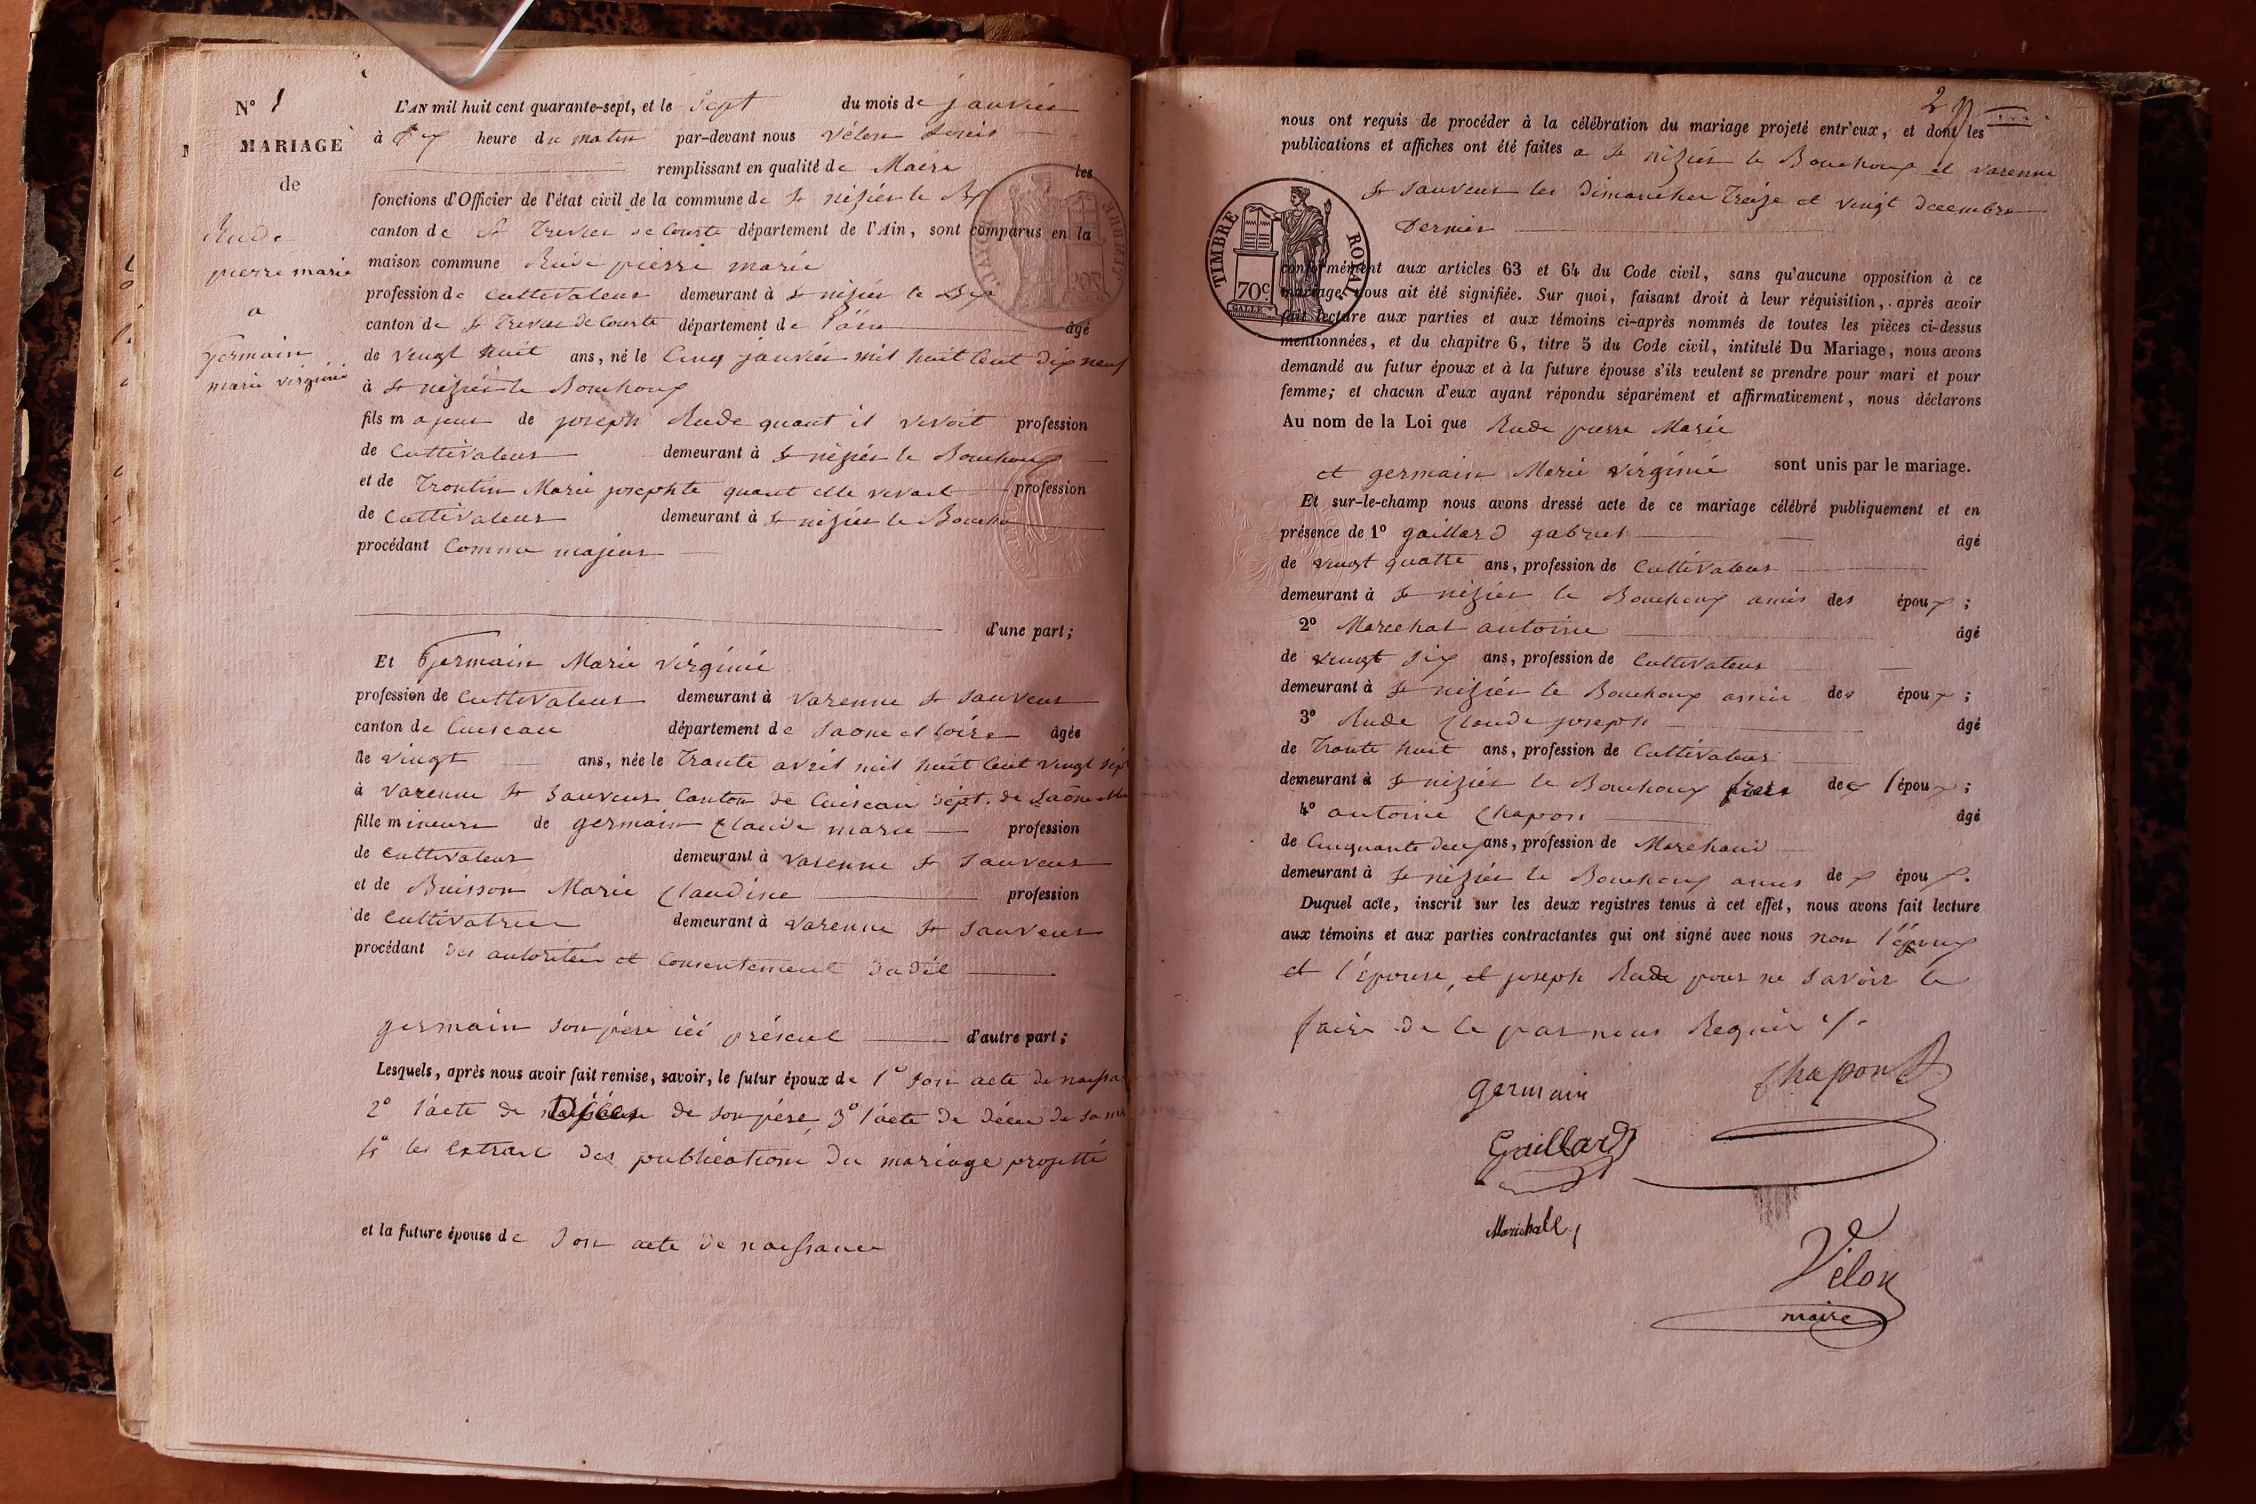 N° 1
MARIAGE
de
Rude
pierre marie
a
germain
marie virginie
L'AN mil huit cent quarante-sept, et le Sept du mois de janvier
à dix heure du matin par-devant nous Vélon Denis
remplissant en qualité de Maire les
fonctions d'Officier de l'état civil de la commune de St nizier le Bx
canton de St Trivier de Courte département de l'Ain, sont comparus en la
maison commune Rude pierre marie
profession de Cultivateur demeurant à St nizier le Bx
canton de St Trivier de Courte département de l'ain âgé
de vingt huit ans, né le Cinq janvier mil huit Cent dix neuf
à St nizier le Bouchoux
fils majeur de joseph Rude quant il vivoit profession
de Cultivateur demeurant à St nizier le Bouchoux
et de Trontin Marie josephte quant elle vivait profession
de Cultivateur demeurant à St nizier le Boucho
procédant Comme majeur
d'une part;
Et Germain Marie virginie
profession de Cultivateur demeurant à Varenne St Sauveur
canton de Cuiseau département de Saone et Loire âgée
de vingt ans, née le Trante avril mil huit Cent vingt sept
à Varenne St Sauveur Canton de Cuiseau dépt. de Saône et L
fille mineure de germain Claude marie profession
de Cultivateur demeurant à varenne St Sauveur
et de Buisson Marie Claudine profession
de Cultivatrice demeurant à varenne St Sauveur
procédant des autoritée et Consentement dudit
germain son père ici présent d'autre part;
Lesquels, après nous avoir fait remise, savoir, le futur époux de 1° Son acte de naissa
2° l'acte de Décès de son père, 3° l'acte de décès de sa m
4° les extrait des publications du mariage projetté
et la future épouse de Son acte de naissance
29
nous ont requis de procéder à la célébration du mariage projeté entr'eux, et dont les
publications et affiches ont été faites a St nizier le Bouchoux et varenne
St Sauveur les Dimanches Treize et vingt decembre
Dernier
TIMBRE ROYAL
70c
conformément aux articles 63 et 64 du Code civil, sans qu'aucune opposition à ce
mariage nous ait été signifiée. Sur quoi, faisant droit à leur réquisition, après avoir
fait lecture aux parties et aux témoins ci-après nommés de toutes les pièces ci-dessus
mentionnées, et du chapitre 6, titre 5 du Code civil, intitulé Du Mariage, nous avons
demandé au futur époux et à la future épouse s'ils veulent se prendre pour mari et pour
femme; et chacun d'eux ayant répondu séparément et affirmativement, nous déclarons
Au nom de la Loi que Rude pierre Marie
et germain Marie virginie sont unis par le mariage.
Et sur-le-champ nous avons dressé acte de ce mariage célébré publiquement et en
présence de 1° gaillard gabriel âgé
de vingt quatre ans, profession de Cultivateur
demeurant à St nizier le Bouchoux amis des époux;
2° Marechal antoine âgé
de vingt six ans, profession de Cultivateur
demeurant à St nizier le Bouchoux amis des époux;
3° Rude Claude joseph âgé
de Trante huit ans, profession de Cultivateur
demeurant à St nizier le Bouchoux frère de l'époux;
4° antoine Chapon âgé
de Cinquante deux ans, profession de Marchand
demeurant à St nizier le Bouchoux amis de époux.
Duquel acte, inscrit sur les deux registres tenus à cet effet, nous avons fait lecture
aux témoins et aux parties contractantes qui ont signé avec nous non l'époux
et l'épouse, et joseph Rude pour ne savoir le
faire de ce par nous Requis ./.
germain
Chapon
Gaillard
Marichall
Vélon
maire